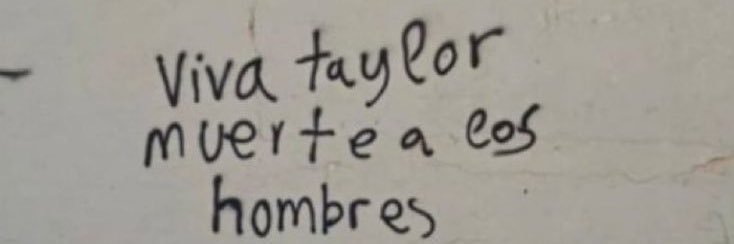 Viva taylor
muerte a los
hombres